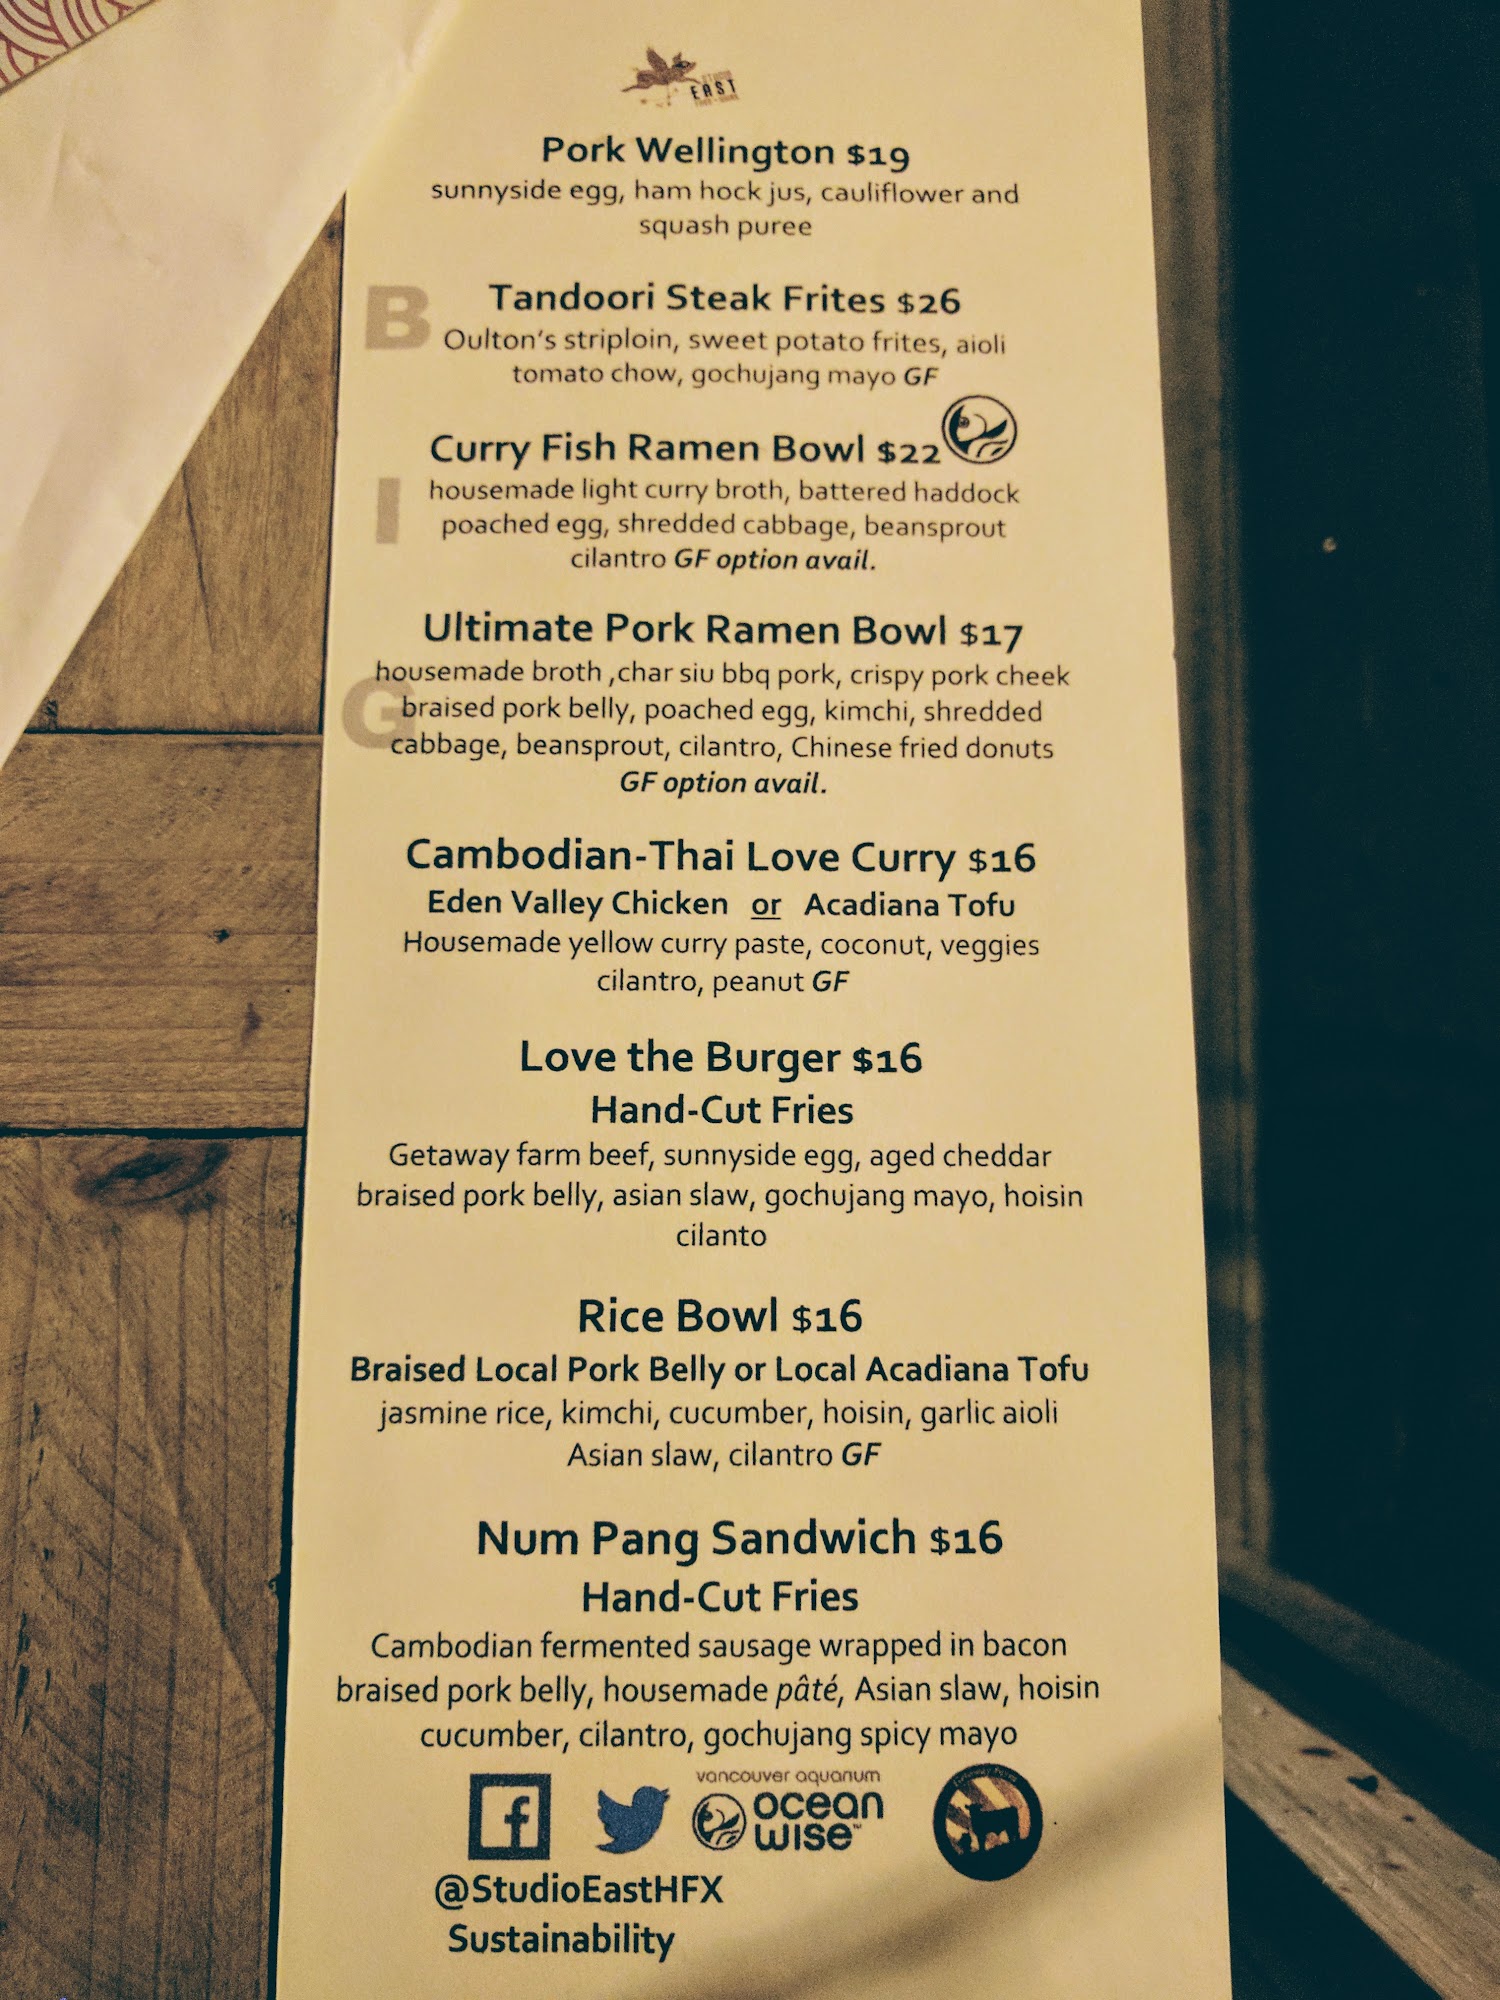 EAST
Pork Wellington $19
sunnyside egg, ham hock jus, cauliflower and
squash puree
B
Tandoori Steak Frites $26
Oulton's striploin, sweet potato frites, aioli
tomato chow, gochujang mayo GF
Curry Fish Ramen Bowl $22
I
housemade light curry broth, battered haddock
poached egg, shredded cabbage, beansprout
cilantro GF option avail.
Ultimate Pork Ramen Bowl $17
housemade broth ,char siu bbq pork, crispy pork cheek
G
braised pork belly, poached egg, kimchi, shredded
cabbage, beansprout, cilantro, Chinese fried donuts
GF option avail.
Cambodian-Thai Love Curry $16
Eden Valley Chicken or Acadiana Tofu
Housemade yellow curry paste, coconut, veggies
cilantro, peanut GF
Love the Burger $16
Hand-Cut Fries
Getaway farm beef, sunnyside egg, aged cheddar
braised pork belly, asian slaw, gochujang mayo, hoisin
cilanto
Rice Bowl $16
Braised Local Pork Belly or Local Acadiana Tofu
jasmine rice, kimchi, cucumber, hoisin, garlic aioli
Asian slaw, cilantro GF
Num Pang Sandwich $16
Hand-Cut Fries
Cambodian fermented sausage wrapped in bacon
braised pork belly, housemade pâté, Asian slaw, hoisin
cucumber, cilantro, gochujang spicy mayo
vancouver aquarium
ocean
wise™
@StudioEastHFX
Sustainability